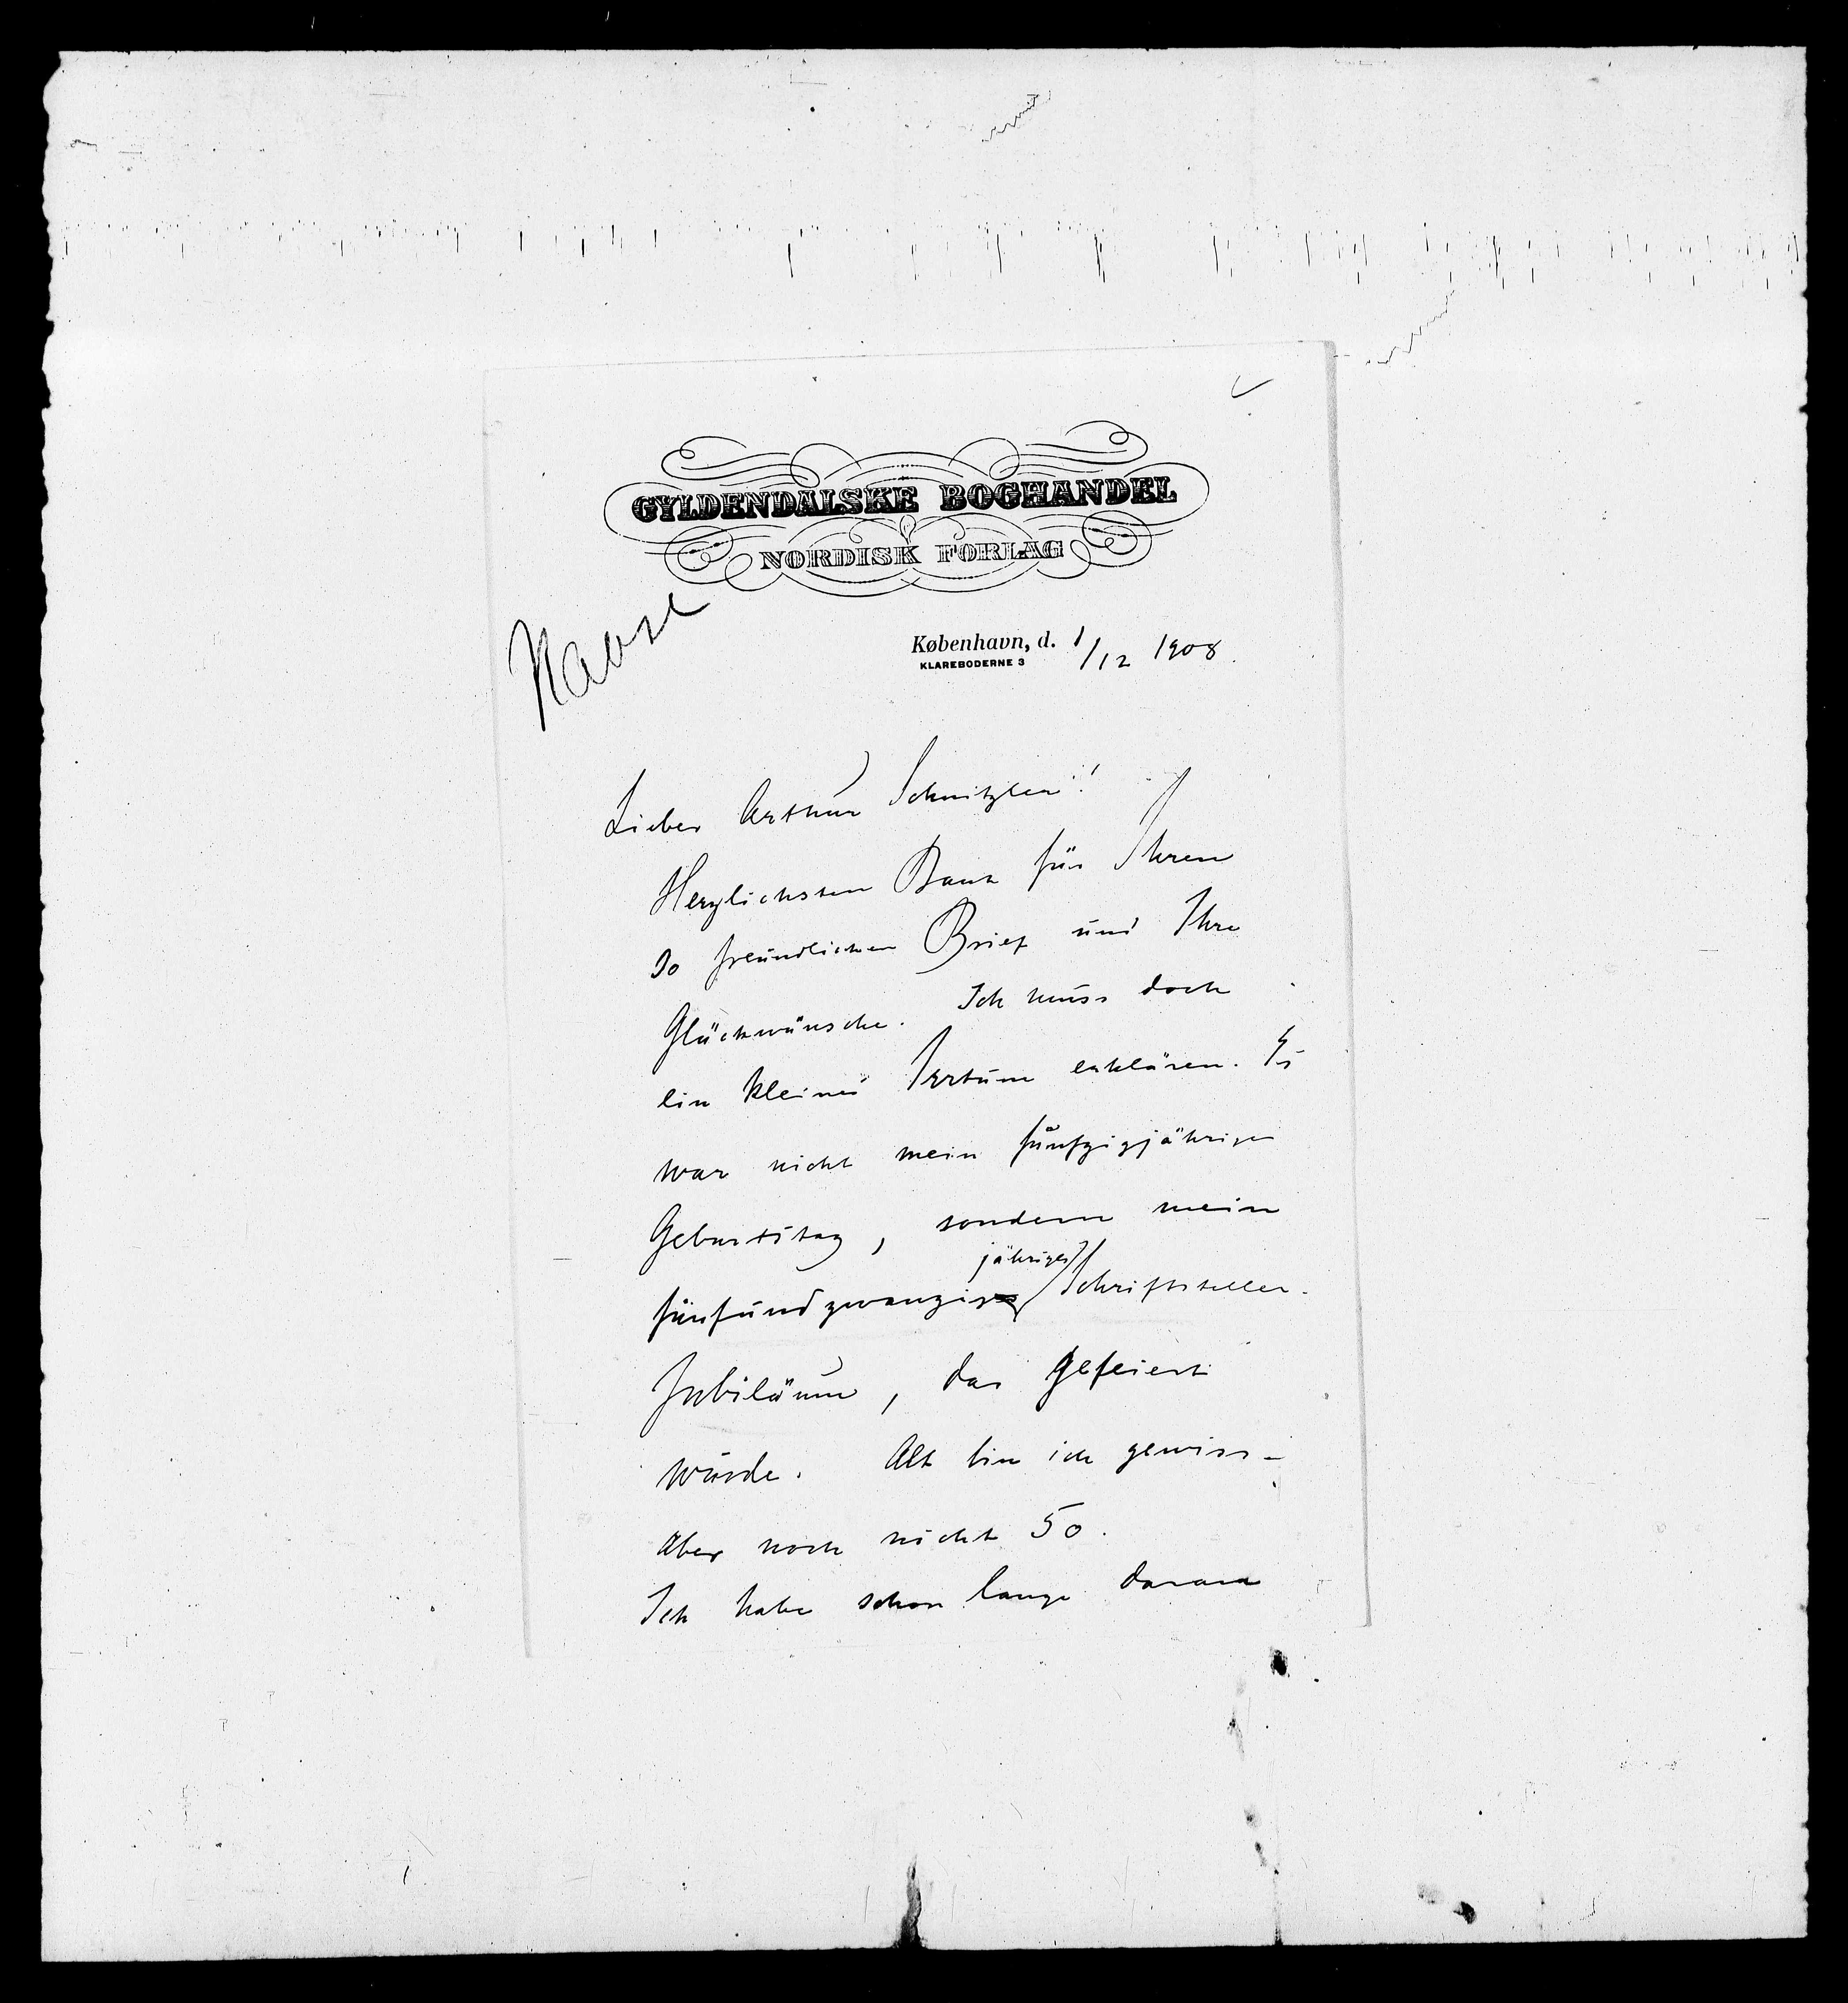 GYLDENDALSKE BOGHANDEL
NORDISK FORLAG
København, d. 1/12 1908.
KLAREBODERNE 3
Lieber Arthur Schnitzler!
Herzlichsten Dank für Ihren
so freundlichen Brief und Ihre
Glückwünsche. Ich muss doch
ein kleines Irrtum erklären. Es
war nicht mein fünfzigjähriger
Geburtstag, sondern mein
jähriges
fünfundzwanzig Schriftsteller-
Jubiläum, das gefeiert
würde. Alt bin ich gewiss –
aber noch nicht 50.
Ich habe schon lange daran